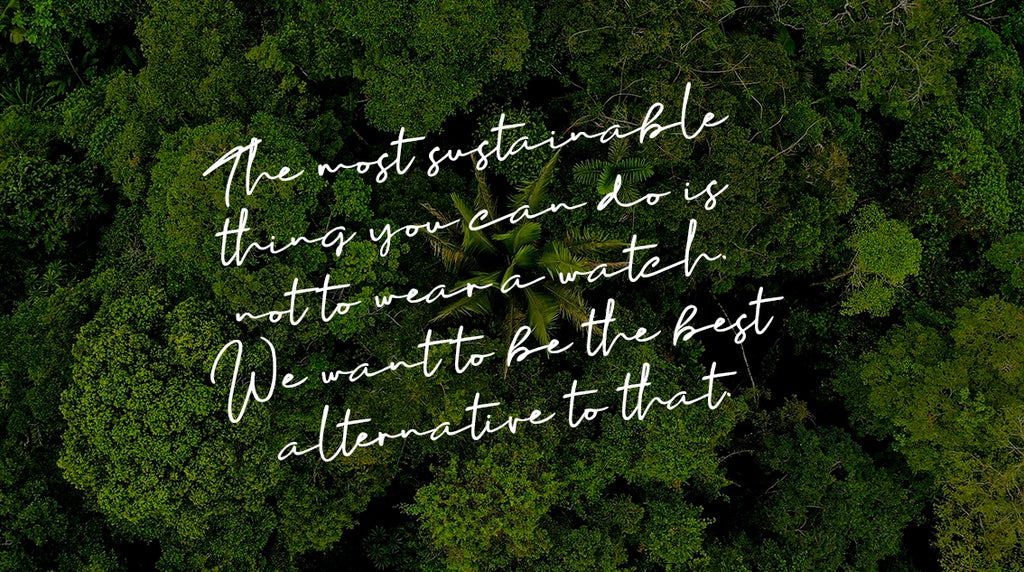 The most sustainable
thing you can do is
not to wear a watch.
We want to be the best
alternative to that.